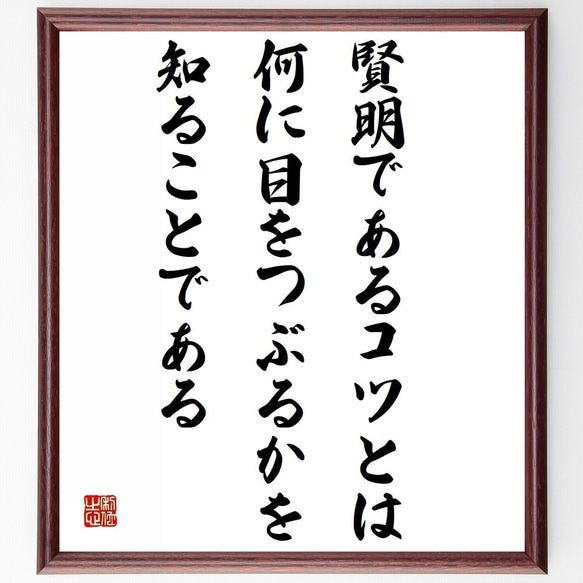 賢明であるコツとは
何に目をつぶるかを
知ることである